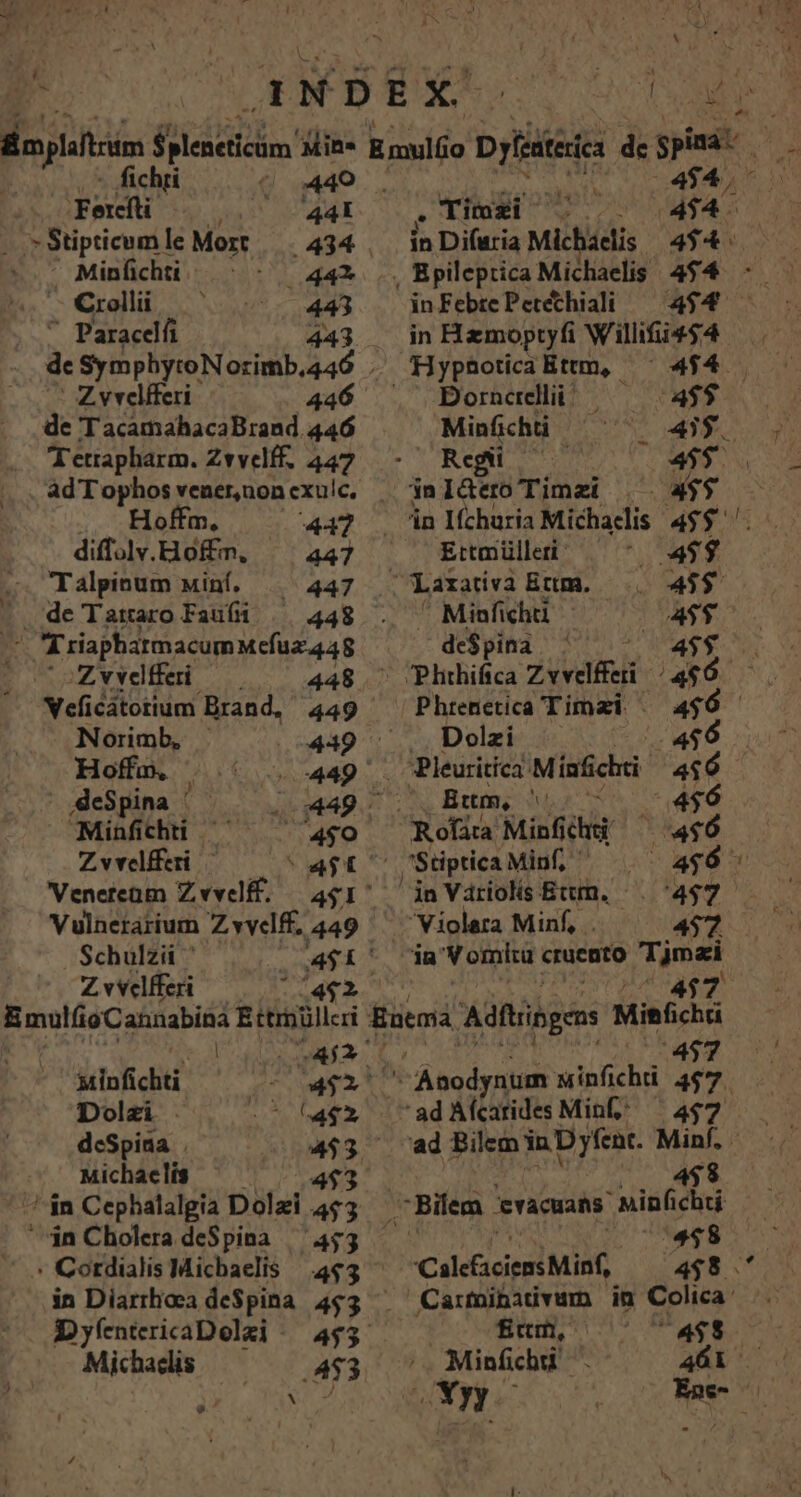 INDEX.
Emplastrum Spleneticum Min-
sichti 440
Foresti 441
Stipticum le Mort 434
Minsichti 442
Crollii 443
Paracelsi 443
de Symphyto Norimb. 446
Zvvelfferi 446
de Tacamahaca Brand. 446
Tetrapharm. Zvvelff. 447
ad Tophos vener, non exulc.
Hoffm. 447
dissolv. Hoffm, 447
Talpinum Minſ. 447
de Tartaro Fausii 448
Triapharmacum Mesuæ 448
Zvvelfferi 448
Vesicatorium Brand, 449
Norimb, 449
Hoffm, 449
deSpina 449
Minfichti 450
Zvvelfferi 451
Venereum Zvvelff. 451
Vulnerarium Zvvelff. 449
Schulzii 451
Zvvelfferi 452
Emulſio Cannabina Ettmülleri
452
Minſichti 452
Dolæi 452
deSpina 453
Michaelis 453
in Cephalalgia Dolæi 453
in Cholera deSpina 453
Cordialis Michaelis 453
in Diarrhœa deSpina 453
Dyſenterica Dolæi 453
Michaelis 453
Emulſio Dyſenterica de Spina
454
Timæi 454
in Diſuria Michaelis 454
Epileptica Michaelis 454
in Febre Petechiali 454
in Hæmoptyſi Williſii 454
Hypnotica Ettm, 454
Dorncrellii 455
Minſichti 455
Regii 455
in Ictero Timæi 455
in Iſchuria Michaelis 455
Ettmülleri 455
Laxativa Ettm. 455
Minſichti 455
deSpina 455
Phthiſica Zvvelfferi 456
Phrenetica Timæi 456
Dolæi 456
Pleuritica Minſichti 456
Ettm, 456
Roſata Minſichti 456
Stiptica Minſ, 456
in Variolis Ettm. 457
Violara Minſ, 457
in Vomitu cruento Timæi
457
Enema Adſtringens Minſichti
457
Anodynum Minſichti 457
ad Aſcarides Minſ, 457
ad Bilem in Dyſent. Minſ.
458
Bilem evacuans Minſichti
458
Calefaciens Minſ, 458
Carminativum in Colica
Ettm, 458
Minſichti 461
Yyy
Ene-